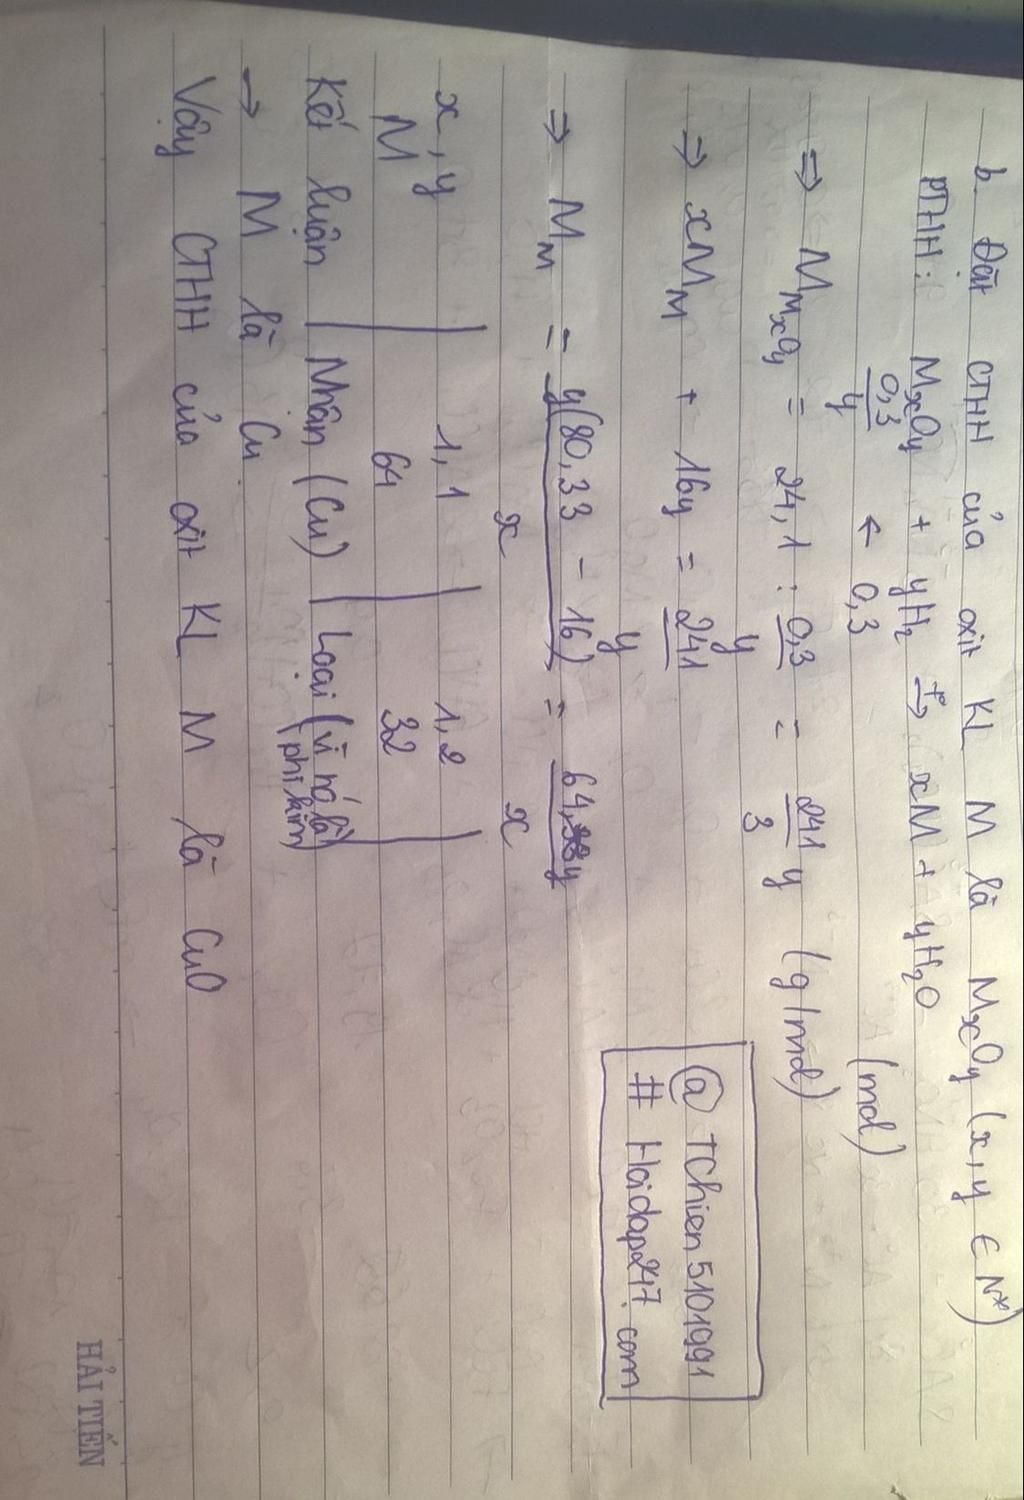 b. Đặt CTHH của oxit KL M là MxOy (x, y ∈ N*)
PTHH: MxOy + yH₂ t°→ xM + yH₂O
0,3/y ← 0,3 (mol)
⇒ M MxOy = 24,1 : 0,3/y = 241/3 y (g/mol)
⇒ xM_M + 16y = 241/y
⇒ M_M = y(80,33 - 16)/x = 64,33y/x
x, y | 1, 1 | 1, 2
M | 64 | 32
Kết luận | Nhận (Cu) | Loại (vì nó là phi kim)
→ M là Cu
Vậy CTHH của oxit KL M là CuO
@ TChien5101991
# Hoidap247.com
HẢI TIẾN